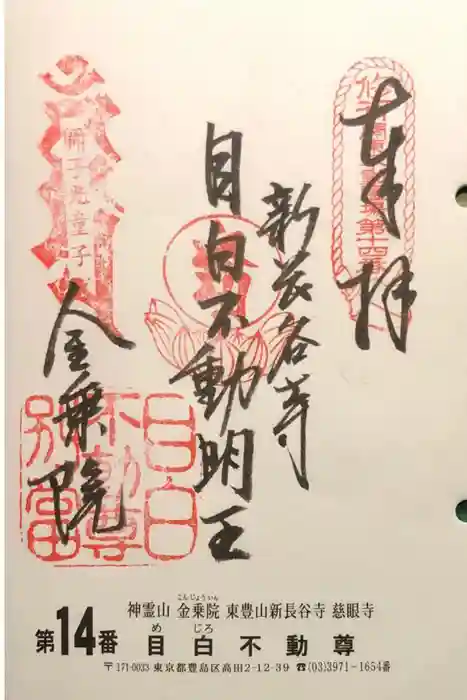 奉拝
新長谷寺
目白不動明王
金乗院
目白
不動尊
別當
神霊山 金乗院 東豊山新長谷寺 慈眼寺
こんじょういん
第14番 目白不動尊
め じろ
〒171-0033 東京都豊島区高田2-12-39 ☎(03)3971-1654番